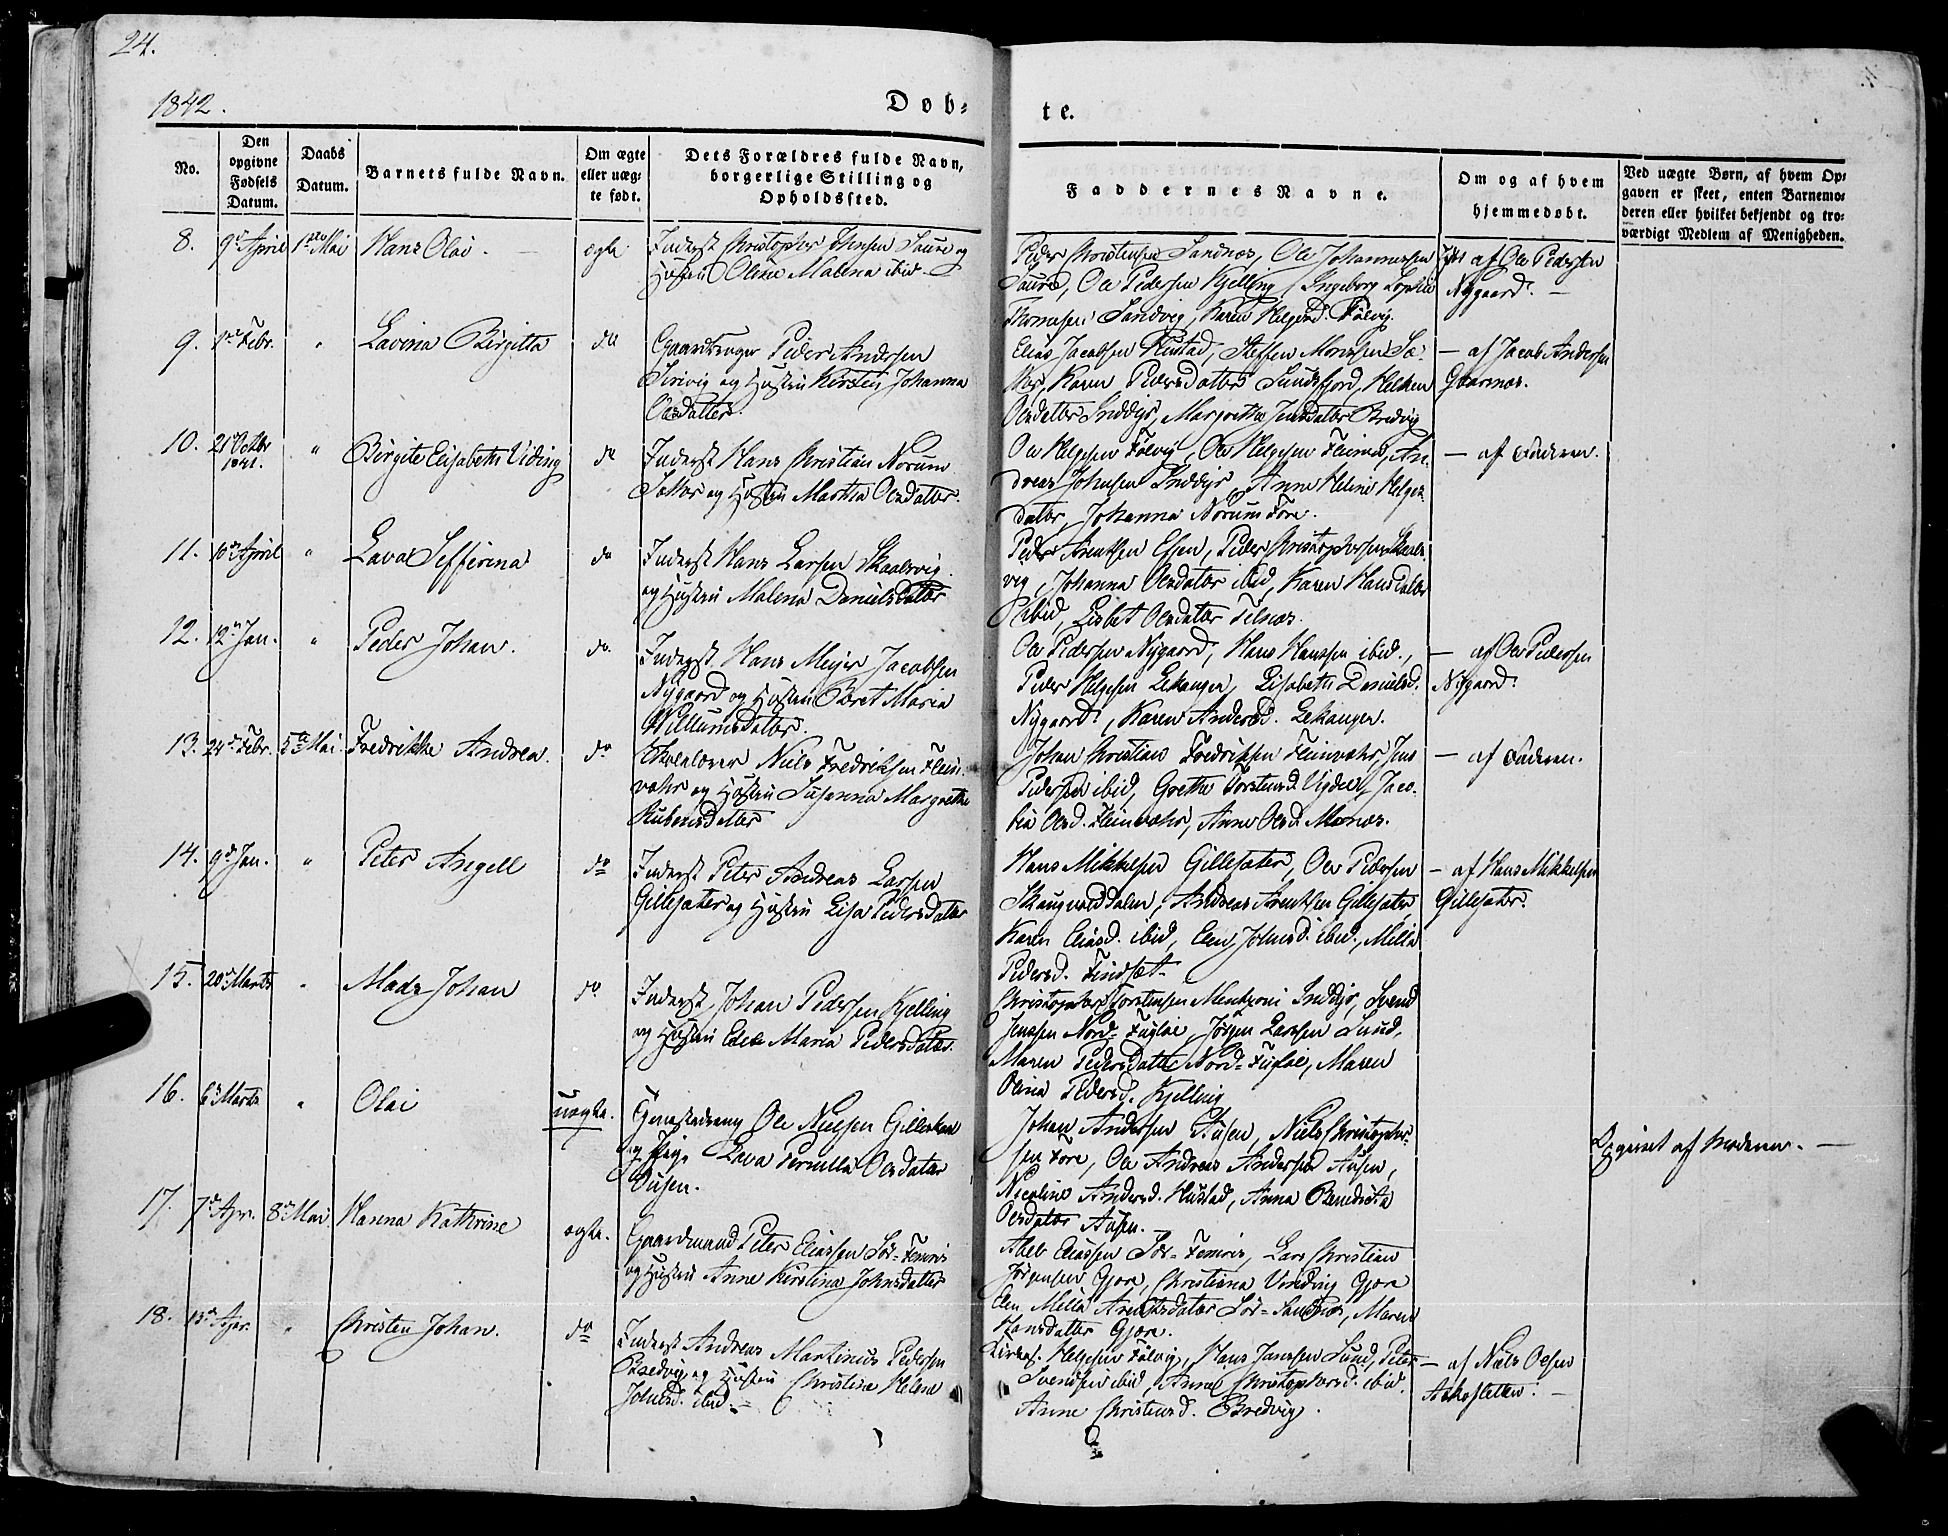 24.
1842.
Døb-
te.
No.
Den opgivne Fødsels Datum.
Daabs Datum.
Barnets fulde Navn.
Om ægte eller uæg- te født.
Dets Forældres fulde Navn, borgerlige Stilling og Opholdssted.
Faddernes Navne.
Om og af hvem hjemmedøbt.
Ved uægte Børn, af hvem Op- gaven er skeet, enten Barnemo- deren eller hvilket bekjendt og tro- værdigt Medlem af Menigheden.
8. 9de April 1ste Mai Hans Olai. ægte
Inderst Christopher Johnsen Saura og
Hustru Oline Malena ibid.
Peder Christensen Sandnes, Ole Johannessen
Saura, Ole Pedersen Kjelling, Ingeborg Sophia
Thomsen Sandvig, Karen Helgesd. Følvig.
af Ole Pedersen
Nygaard.
9. 1ste Febr. " Lavina Birgitta do
Gaardbruger Peder Andersen
og Hustru Kirsten Johanna
Olsdatter.
Elias Jacobsen Hustad, Steffen
Karen Pedersdatter Sundsfjord,
Olsdatter Inddyr, Margrethe Jensdatter Bredvig
— af Jacob Andersen
10. 21 Octbr 1841. " Birgite Elisabeth Viding do
Inderst Hans Christian Norum
og Hustru Martha Olsdatter.
Ole Helgesen Følvig, Ole Helgesen Fleines, An-
dreas Johnsen Inddyr, Anne Helene Helges-
datter, Johanna Norum Fore.
— af Faderen.
11. 10de April " Lava Seffirina do
Inderst Hans Larsen Skaalsvig
og Hustru Malena Danielsdatter
Peder Arentsen Esen, Peder Christophersen Skaals-
vig, Johanna Olsdatter ibid, Karen Hansdatter
ibid, Lisbet Olsdatter Felnes.
12. 12te Jan. " Peder Johan. do
Inderst Hans Meyer Jacobsen
Nygaard og Hustru Beret Maria
Willumsdatter.
Ole Pedersen Nygaard, Hans Hansen ibid.,
Peder Helgesen Lekanger, Elisabeth Danielsd.
Nygaard, Karen Andersd. Lekanger.
— af Ole Pedersen
Nygaard.
13. 24de Febr. 5te Mai. Fredrikke Andrea. do
Niels Fredriksen Flein-
vær og Hustru Susanna Margrethe
Rubensdatter
Johan Christian Fredriksen Fleinvær, Jens
Pedersen ibid, Grethe Torstensd. Vigdel, Jaco-
bia Olsd. Fleinvær, Anne Olsd. Mones.
— af Faderen.
14. 9de Jan. " Peter Angell do
Inderst Peter Andreas Larsen
Gillesæter og Hustru Lisa Pedersdatter
Hans Mikkelsen Gillesæter, Ole Pedersen
Andreas Arentsen Gillesæter
Karen Eliasd. ibid, Elen Johnsd. ibid., Milla
Pedersd. Finsæt.
— af Hans Mikkelsen
Gillesæter.
15. 20de Marts " Mads Johan do
Inderst Johan Pedersen Kjelling
og Hustru Maria Pedersdatter.
Christopher Torstensen Mentzoni Inddyr, Svend
Jenssen Nord-Fugløe, Jørgen Larssen Sund,
Maren Pedersdatter Nord-Fugløe, Maren
Olina Pedersd. Kjelling
16. 6te Marts " Olai uægte.
Ole Nielsen Gilleskaal
og Pige Lava Pernilla Olsdatter
Ausen.
Johan Andersen Ausen, Niels Christopher-
sen Fore, Ole Andreas Andersen Ausen,
Nicoline Andersd. Hustad, Anna Benedicta
Olsdatter Ausen.
Opgivet af Moderen. —
17. 7de Apr. 8de Mai Hanna Kathrine ægte.
Gaardmand Peter Eliassen Sør-Femris
og Hustru Anne Kirstina Johnsdatter
Abel Eliassen Sør-Femris, Lars Christian
Jørgensen Gjøre, Christiana Vinding Gjøre
Elen Milla Arentsdatter Sør-Sandnes, Maren
Hansdatter Gjøre.
18. 15de Apr. " Christen Johan. do
Inderst Andreas Martinus Pedersen
Bredvig og Hustru Christine Helene
Johnsd. ibid. —
Helgesen Følvig, Hans Janssen Sund, Peter
Svendsen ibid, Anne Christophersd. ibid.
Anne Christensd. Bredvig.
— af Niels Olsen